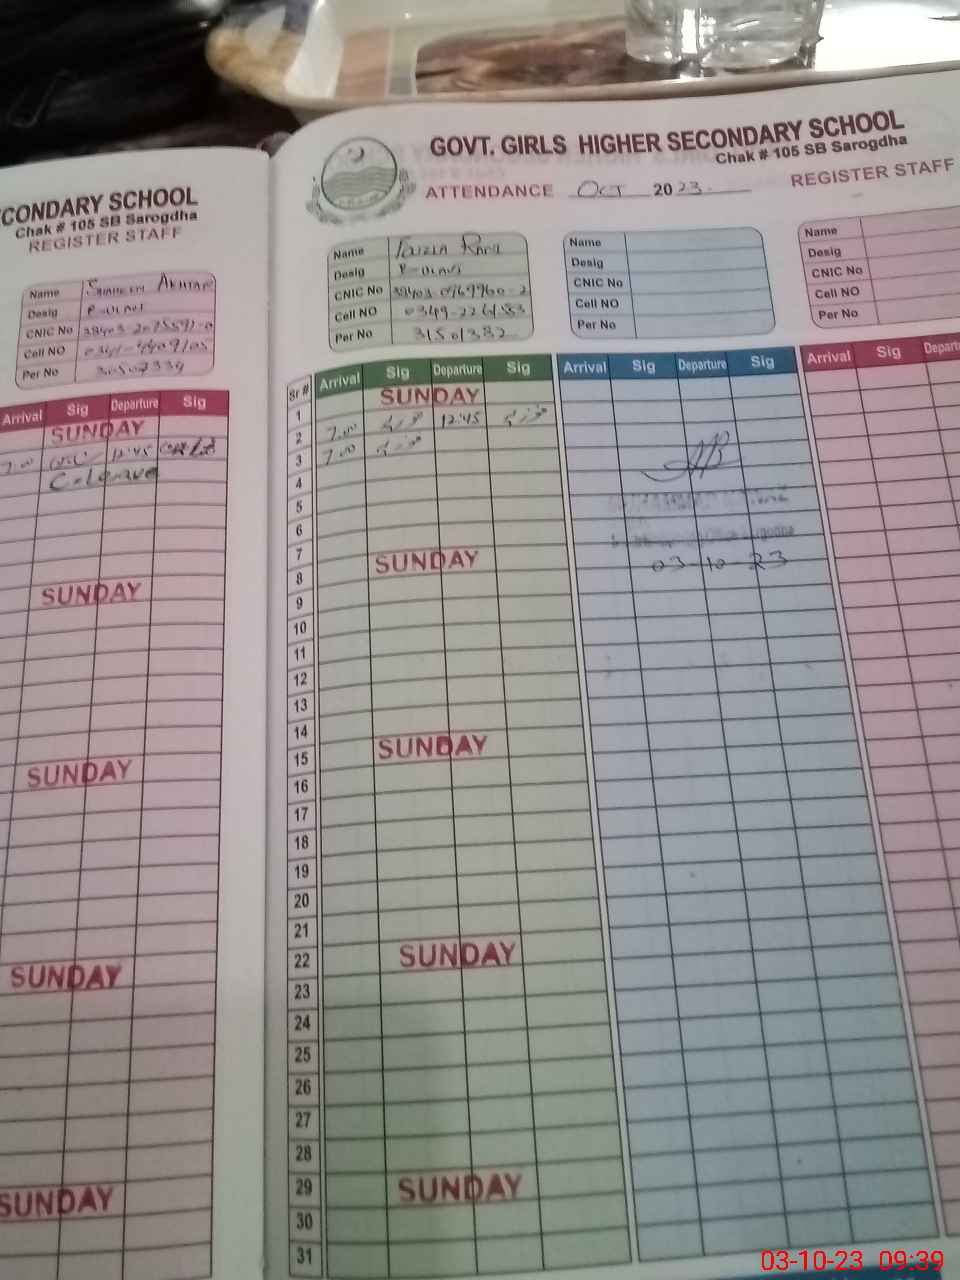 CONDARY SCHOOL
Chak # 105 SB Sarogdha
REGISTER STAFF
Name Akhtar
Desig
CNIC No
Cell NO
Per No 30507339
Arrival Sig Departure Sig
SUNDAY
7.00 12:45
C-leave
SUNDAY
SUNDAY
SUNDAY
SUNDAY
GOVT. GIRLS HIGHER SECONDARY SCHOOL
Chak # 105 SB Sarogdha
ATTENDANCE OCT 2023 REGISTER STAFF
Name Faizia Rani
Desig
CNIC No 38403-0969960-2
Cell NO
Per No 31501332
Name
Desig
CNIC No
Cell NO
Per No
Name
Desig
CNIC No
Cell NO
Per No
Sr # Arrival Sig Departure Sig Arrival Sig Departure Sig Arrival Sig Depart
1 SUNDAY
2 7.00 12:45
3 7.00
4
5
6
7
8 SUNDAY
9
10
11
12
13
14
15 SUNDAY
16
17
18
19
20
21
22 SUNDAY
23
24
25
26
27
28
29 SUNDAY
30
31
03-10-23
03-10-23 09:39